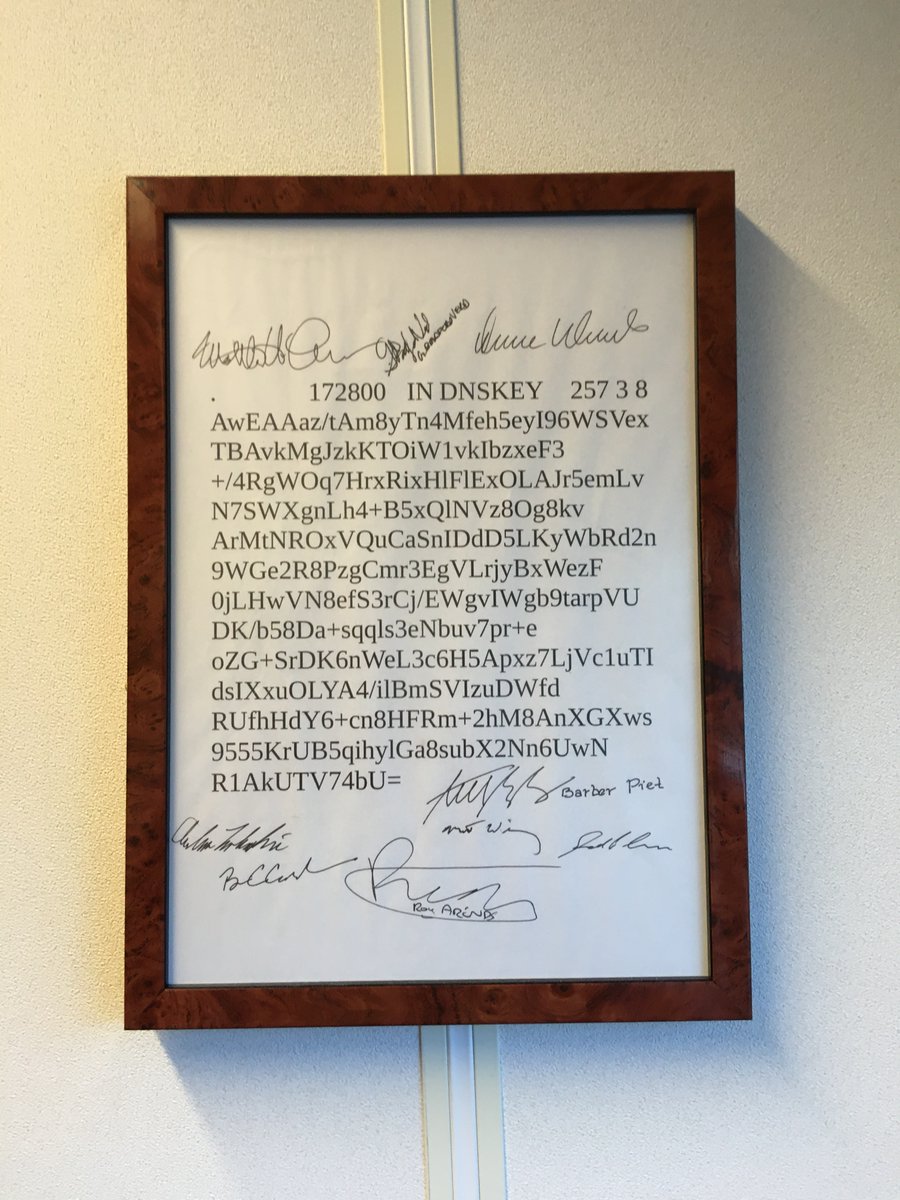 . 172800 IN DNSKEY 257 3 8
AwEAAaz/tAm8yTn4Mfeh5eyI96WSVex
TBAvkMgJzkKTOiW1vkIbzxeF3
+/4RgWOq7HrxRixHlFlExOLAJr5emLv
N7SWXgnLh4+B5xQlNVz8Og8kv
ArMtNROxVQuCaSnIDdD5LKyWbRd2n
9WGe2R8PzgCmr3EgVLrjyBxWezF
0jLHwVN8efS3rCj/EWgvIWgb9tarpVU
DK/b58Da+sqqls3eNbuv7pr+e
oZG+SrDK6nWeL3c6H5Apxz7LjVc1uTI
dsIXxuOLYA4/ilBmSVIzuDWfd
RUfhHdY6+cn8HFRm+2hM8AnXGXws
9555KrUB5qihylGa8subX2Nn6UwN
R1AkUTV74bU=
Barber Piet
Roy ARENDS